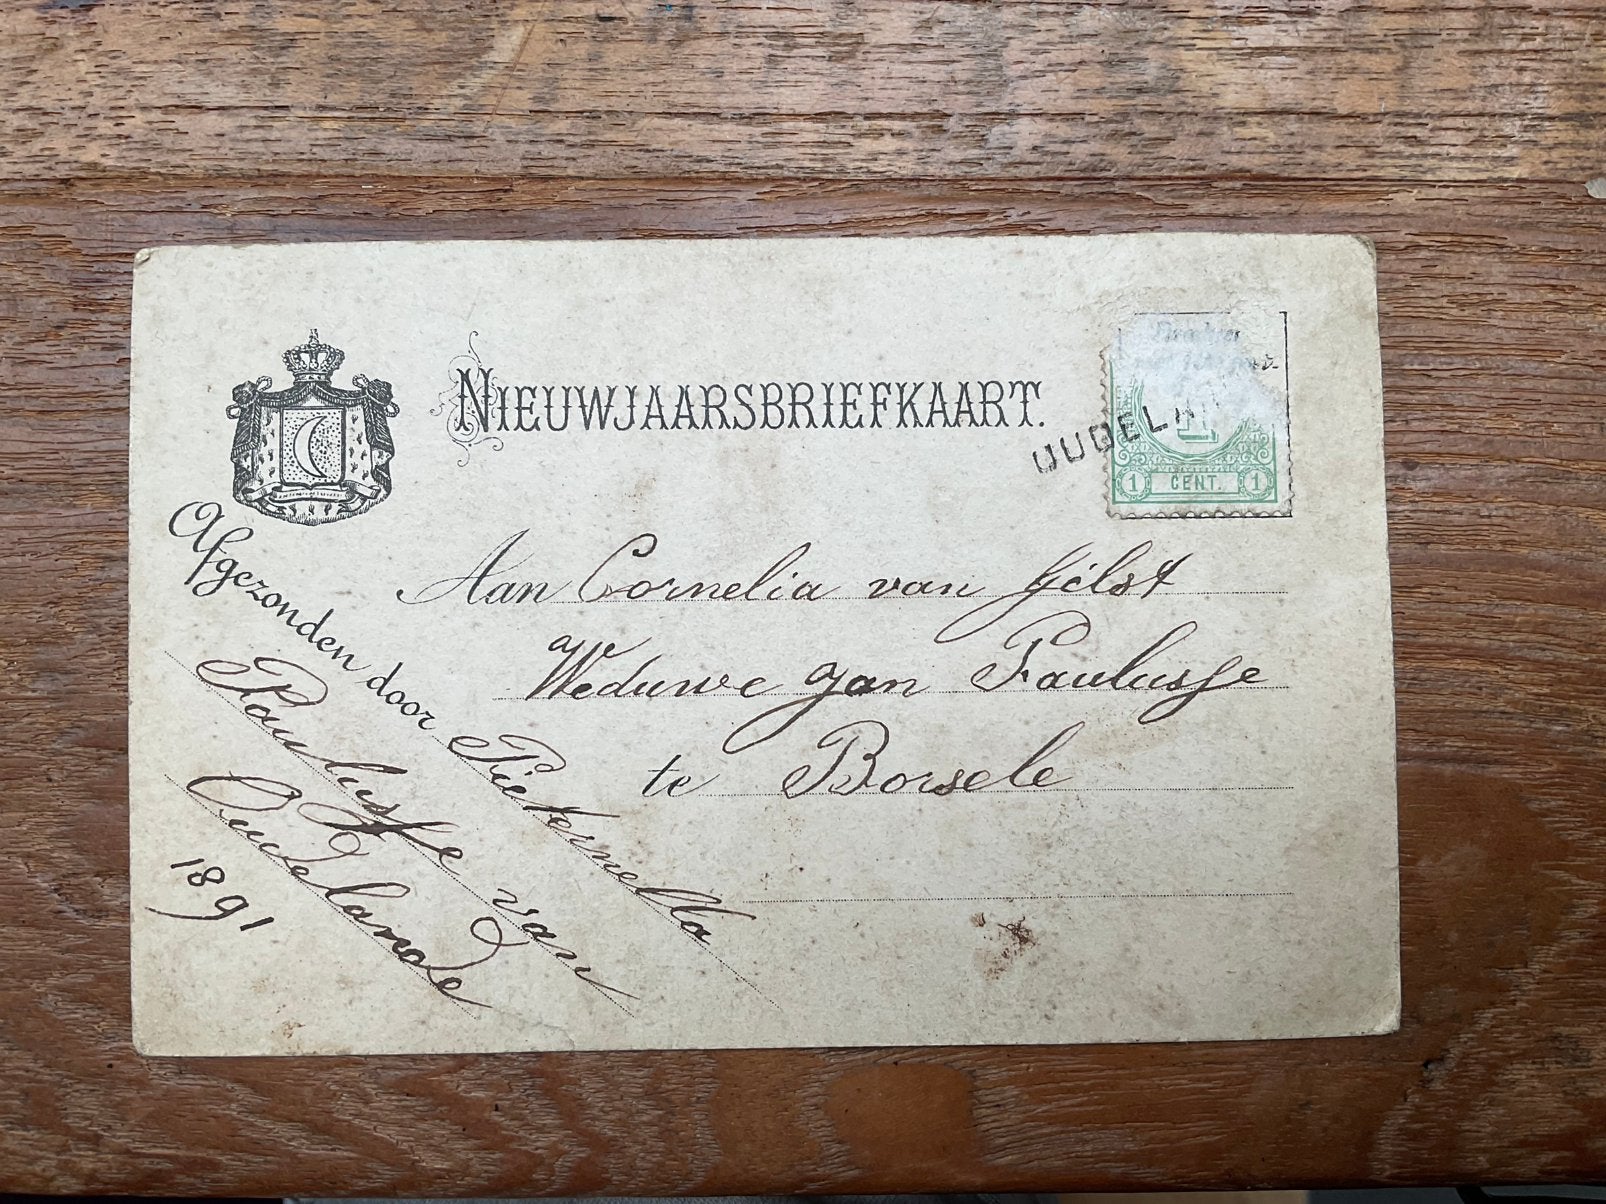 NIEUWJAARSBRIEFKAART.
OUDELAN
1 CENT. 1
Aan Cornelia van Gilst
Weduwe Jan Paulusse
te Borsele
Afgezonden door Pieternella
Paulusse van
Oudelande
1891